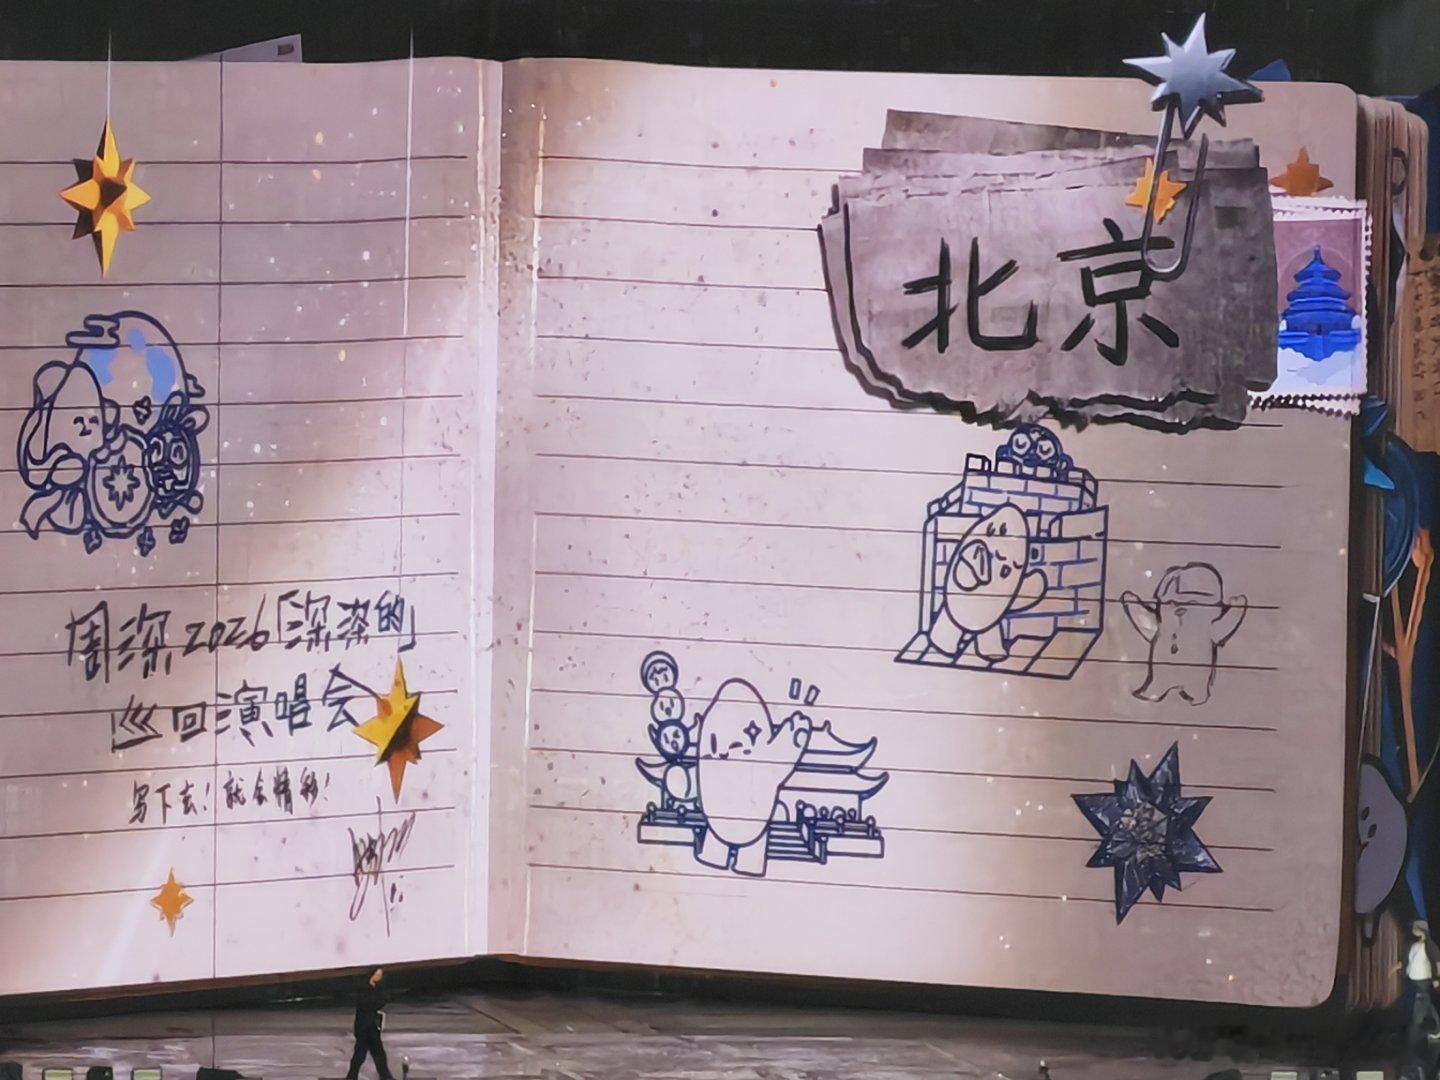 周深2026「深深的」
巡回演唱会
写下去！就会精彩！
北京